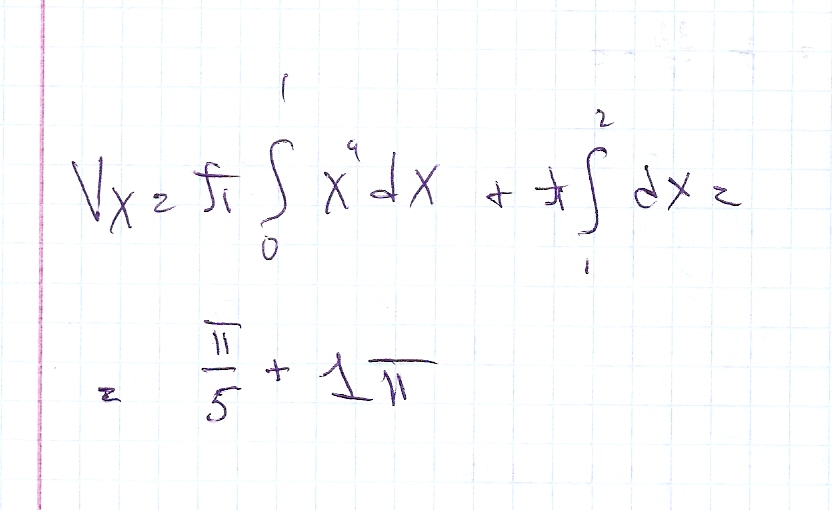 Vx = π ∫₀¹ x⁴ dx + π ∫₁² dx =
= π/5 + 1π